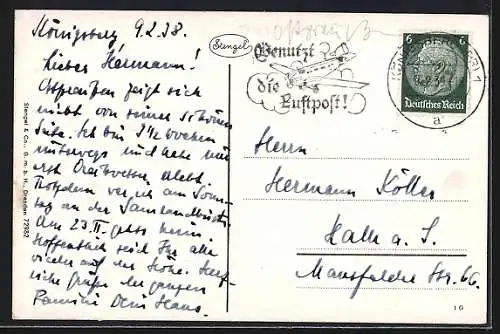 Königsberg 9.2.38.
Lieber Hermann!
Ostpreußen zeigt sich
nicht von seiner schönen
Seite. Ich bin 1½ Wochen
unterwegs und habe nur
erlebt.
Trotzdem war ich am Sonn-
tag an der Samlandküste.
Am 23.II. geht's heim.
Hoffentlich seid Ihr alle
wieder auf der Höhe. Herz-
liche Grüße der ganzen
Familie Dein Hans.
Stengel & Co., G. m. b. H., Dresden 72982
Stengel
Benutzt
die
Luftpost!
6 6
Deutsches Reich
a
Herrn
Hermann Köller
Halle a. S.
Mansfelder Str. 66.